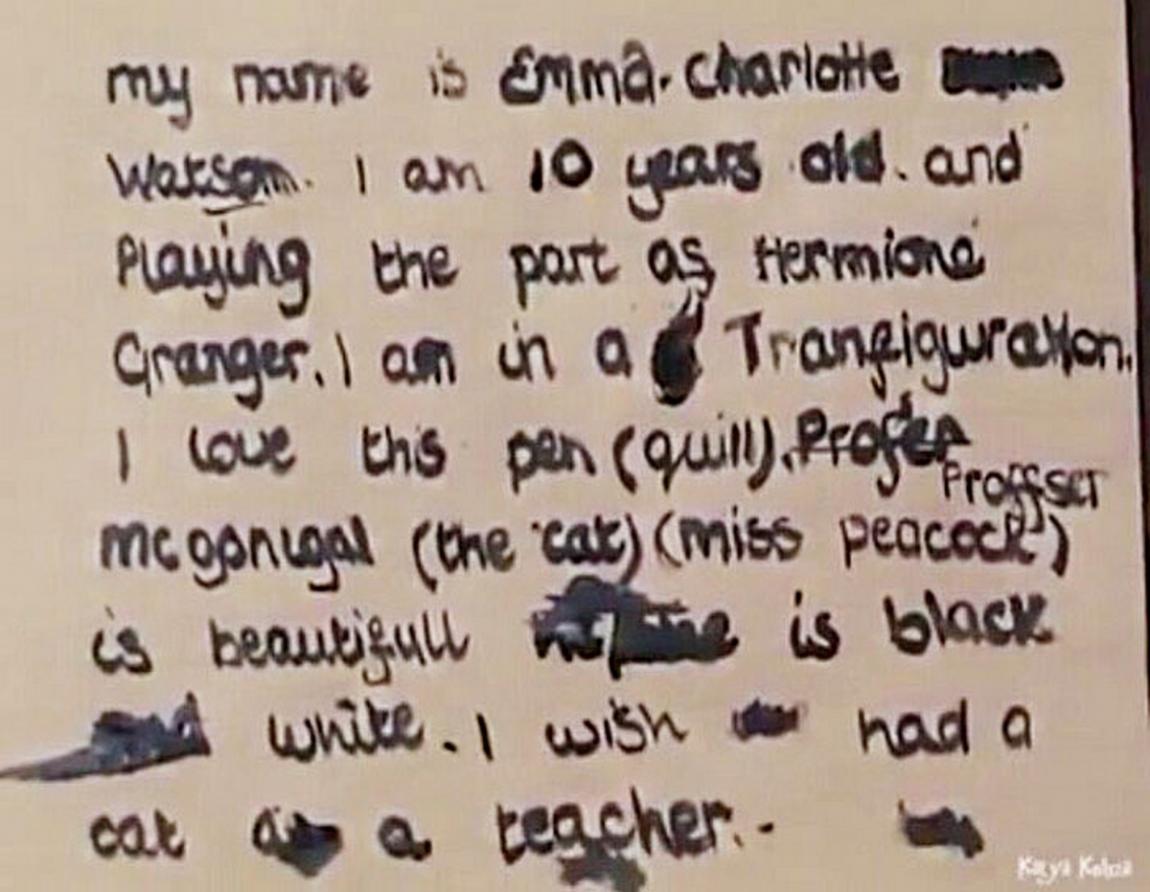 my name is Emma. Charlotte
Watson. I am 10 years old. and
Playing the part as Hermione
Granger. I am in a Tranfiguration.
I love this pen (quill). Profer
Proffser
mcgonigal (the cat) (miss peacock)
is beautifull is black
white. I wish had a
cat as a teacher.
Katya Kolna